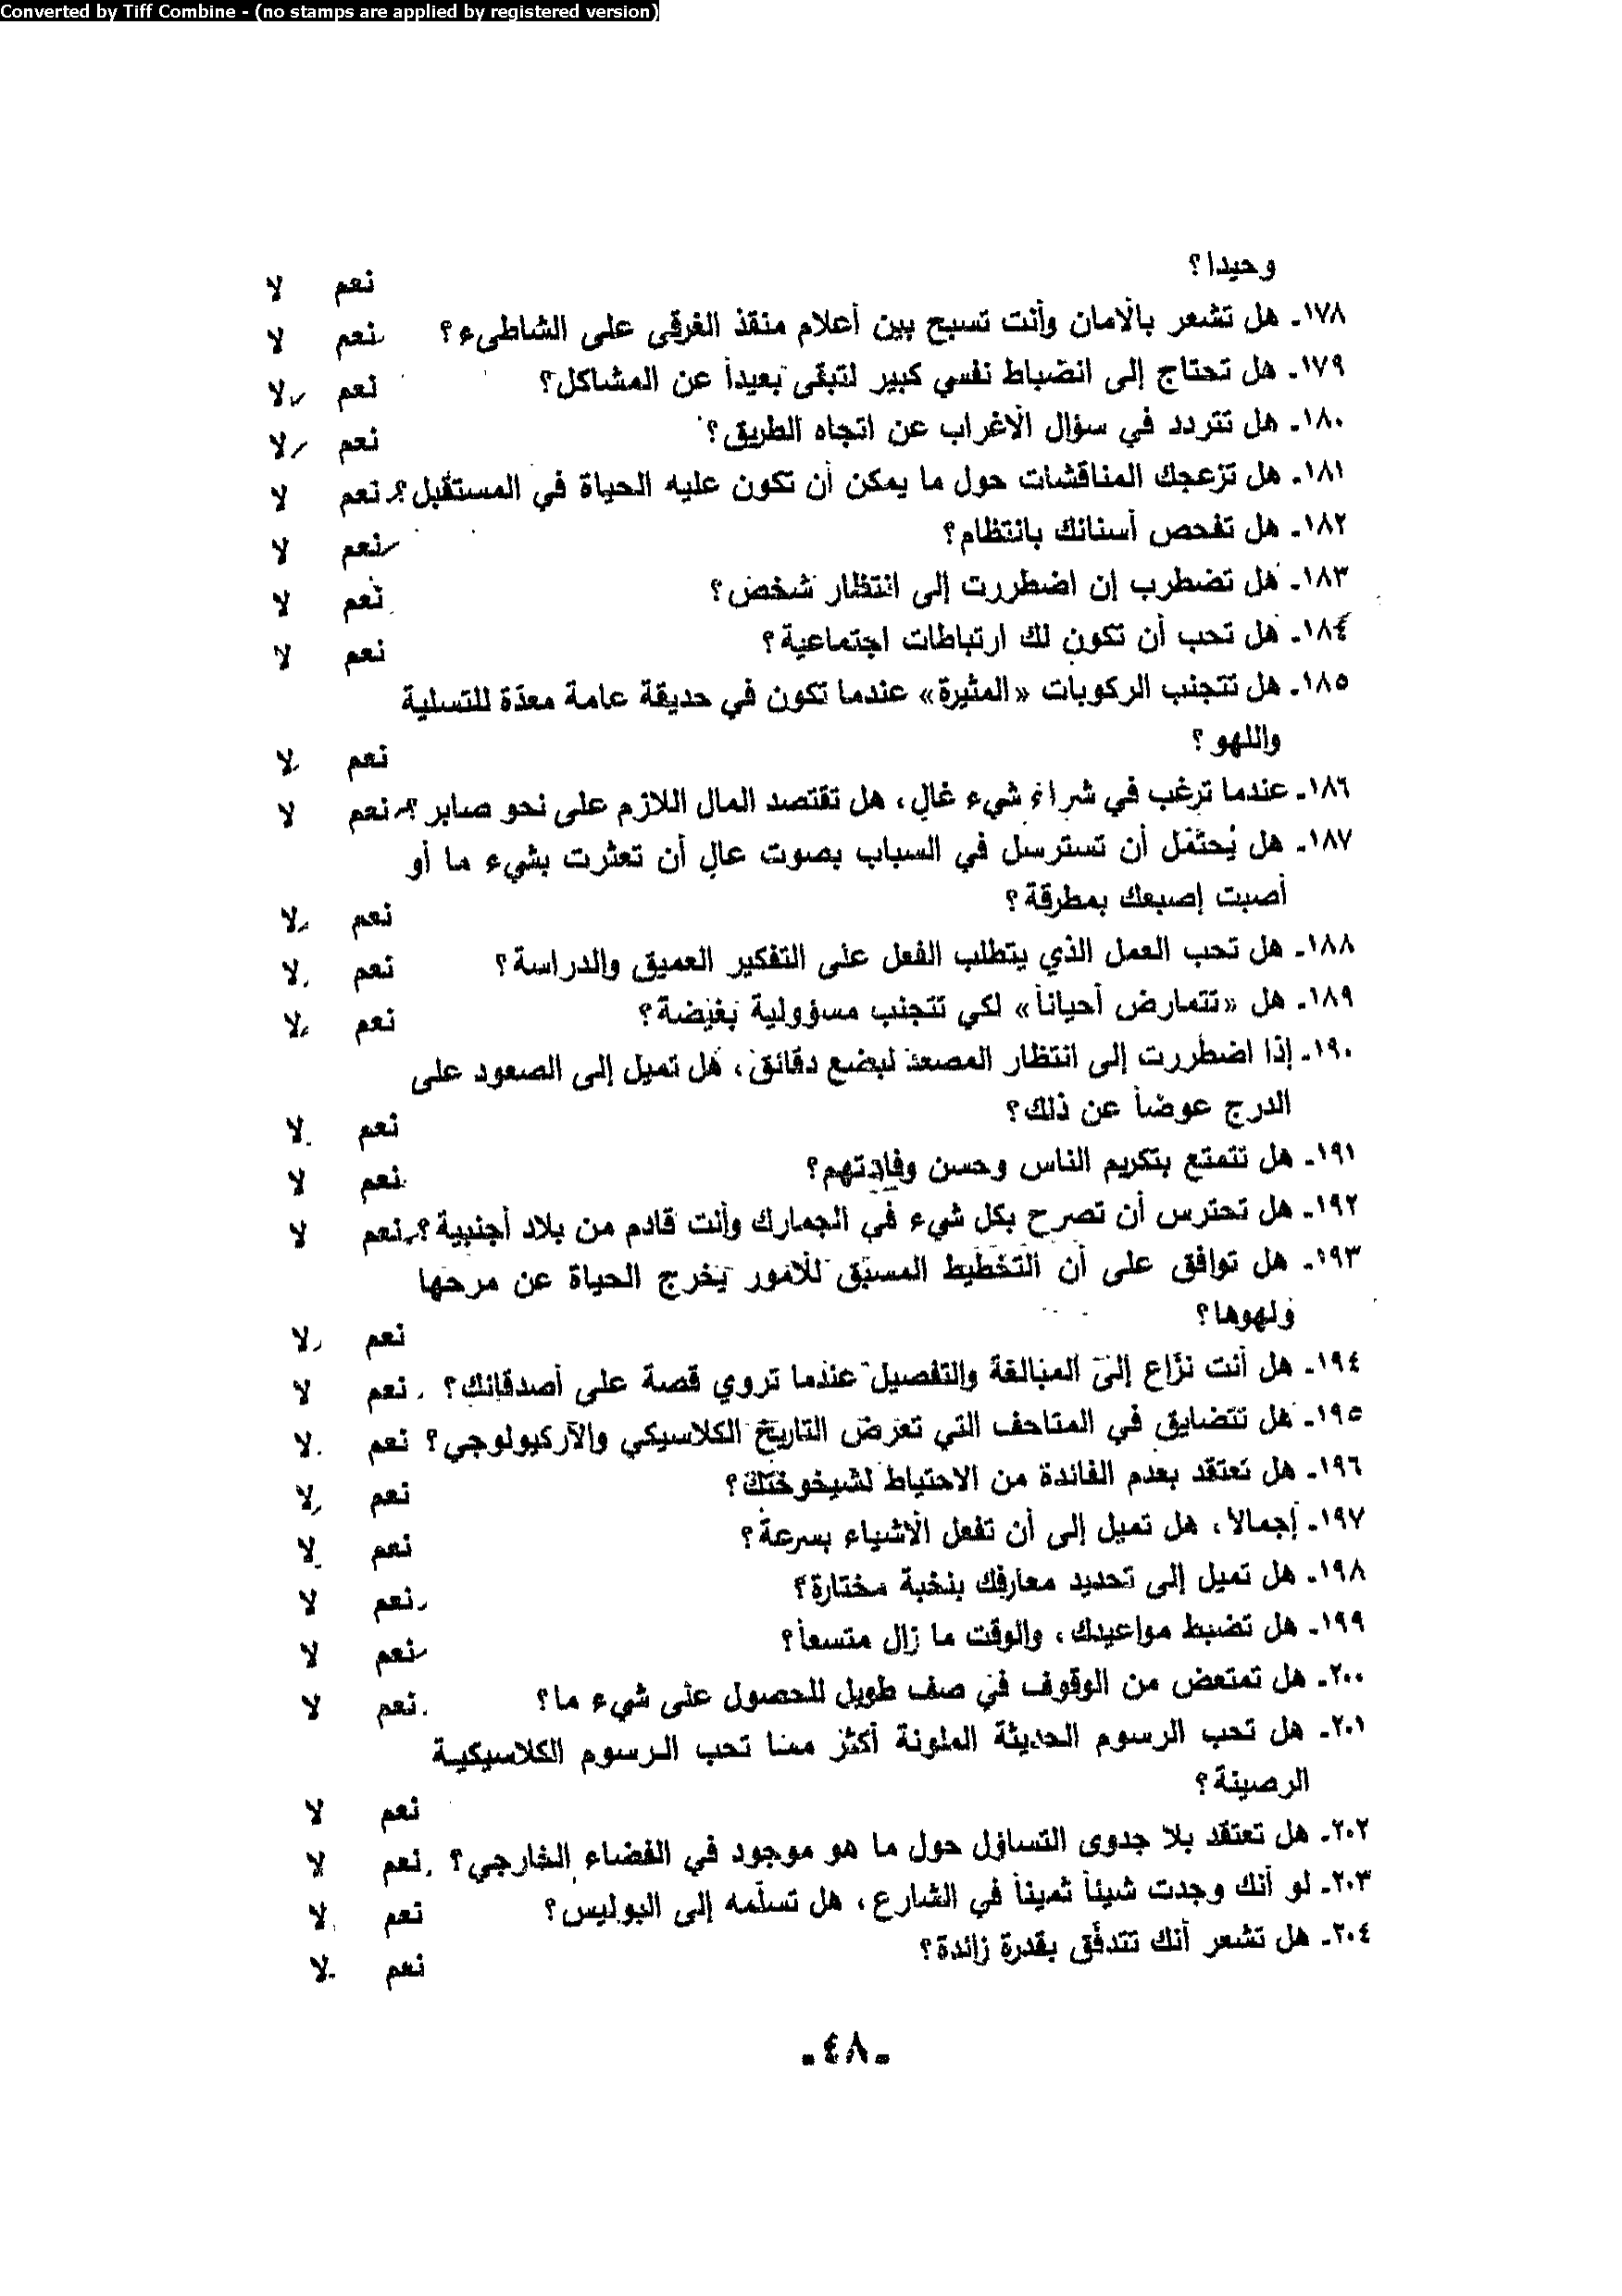 Converted by Tiff Combine - (no stamps are applied by registered version)
وحيدا؟ نعم لا
١٧٨ـ هل تشعر بالأمان وأنت تسبح بين أعلام منقذ الغرقى على الشاطىء؟ نعم لا
١٧٩ـ هل تحتاج إلى انضباط نفسي كبير لتبقى بعيداً عن المشاكل؟ نعم لا
١٨٠ـ هل تتردد في سؤال الأغراب عن اتجاه الطريق؟ نعم لا
١٨١ـ هل تزعجك المناقشات حول ما يمكن أن تكون عليه الحياة في المستقبل؟ نعم لا
١٨٢ـ هل تفحص أسنانك بانتظام؟ نعم لا
١٨٣ـ هل تضطرب إن اضطررت إلى انتظار شخص؟ نعم لا
١٨٤ـ هل تحب أن تكون لك ارتباطات اجتماعية؟ نعم لا
١٨٥ـ هل تتجنب الركوبات «المثيرة» عندما تكون في حديقة عامة معدّة للتسلية
واللهو؟ نعم لا
١٨٦ـ عندما ترغب في شراء شيء غالٍ، هل تقتصد المال اللازم على نحو صابر؟ نعم لا
١٨٧ـ هل يُحتمل أن تسترسل في السباب بصوت عالٍ أن تعثرت بشيء ما أو
أصبت إصبعك بمطرقة؟ نعم لا
١٨٨ـ هل تحب العمل الذي يتطلب الفعل على التفكير العميق والدراسة؟ نعم لا
١٨٩ـ هل «تتمارض أحياناً» لكي تتجنب مسؤولية بغيضة؟ نعم لا
١٩٠ـ إذا اضطررت إلى انتظار المصعد لبضع دقائق، هل تميل إلى الصعود على
الدرج عوضاً عن ذلك؟ نعم لا
١٩١ـ هل تتمتع بتكريم الناس وحسن وفادتهم؟ نعم لا
١٩٢ـ هل تحترس أن تصرح بكل شيء في الجمارك وأنت قادم من بلاد أجنبية؟ نعم لا
١٩٣ـ هل توافق على أن التخطيط المسبق للأمور يخرج الحياة عن مرحها
ولهوها؟ نعم لا
١٩٤ـ هل أنت نزّاع إلى المبالغة والتفصيل عندما تروي قصة على أصدقائك؟ نعم لا
١٩٥ـ هل تتضايق في المتاحف التي تعرض التاريخ الكلاسيكي والآركيولوجي؟ نعم لا
١٩٦ـ هل تعتقد بعدم الفائدة من الاحتياط لشيخوختك؟ نعم لا
١٩٧ـ إجمالاً، هل تميل إلى أن تفعل الأشياء بسرعة؟ نعم لا
١٩٨ـ هل تميل إلى تحديد معارفك بنخبة مختارة؟ نعم لا
١٩٩ـ هل تضبط مواعيدك، والوقت ما زال متسعاً؟ نعم لا
٢٠٠ـ هل تمتعض من الوقوف في صف طويل للحصول على شيء ما؟ نعم لا
٢٠١ـ هل تحب الرسوم الحديثة الملونة أكثر مما تحب الرسوم الكلاسيكية
الرصينة؟ نعم لا
٢٠٢ـ هل تعتقد بلا جدوى التساؤل حول ما هو موجود في الفضاء الخارجي؟ نعم لا
٢٠٣ـ لو أنك وجدت شيئاً ثميناً في الشارع، هل تسلّمه إلى البوليس؟ نعم لا
٢٠٤ـ هل تشعر أنك تتدفّق بقدرة زائدة؟ نعم لا
ـ٤٨ـ